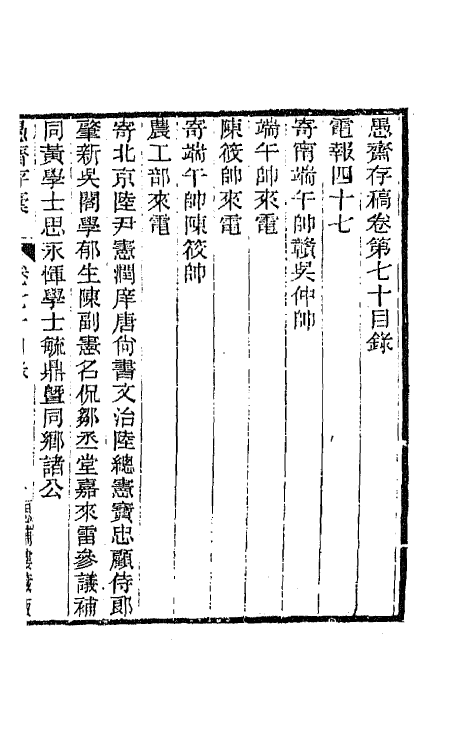 愚齋存稿卷第七十目錄
電報四十七
寄甯端午帥贛吳仲帥
端午帥來電
陳筱帥來電
寄端午帥陳筱帥
農工部來電
寄北京陸尹憲潤庠唐尙書文治陸總憲寶忠顧侍郞
肇新吳閣學郁生陳副憲名侃鄒丞堂嘉來雷參議補
同黃學士思永惲學士毓鼎曁同鄉諸公
愚齋存稿 卷七十目錄 一 思補樓藏版